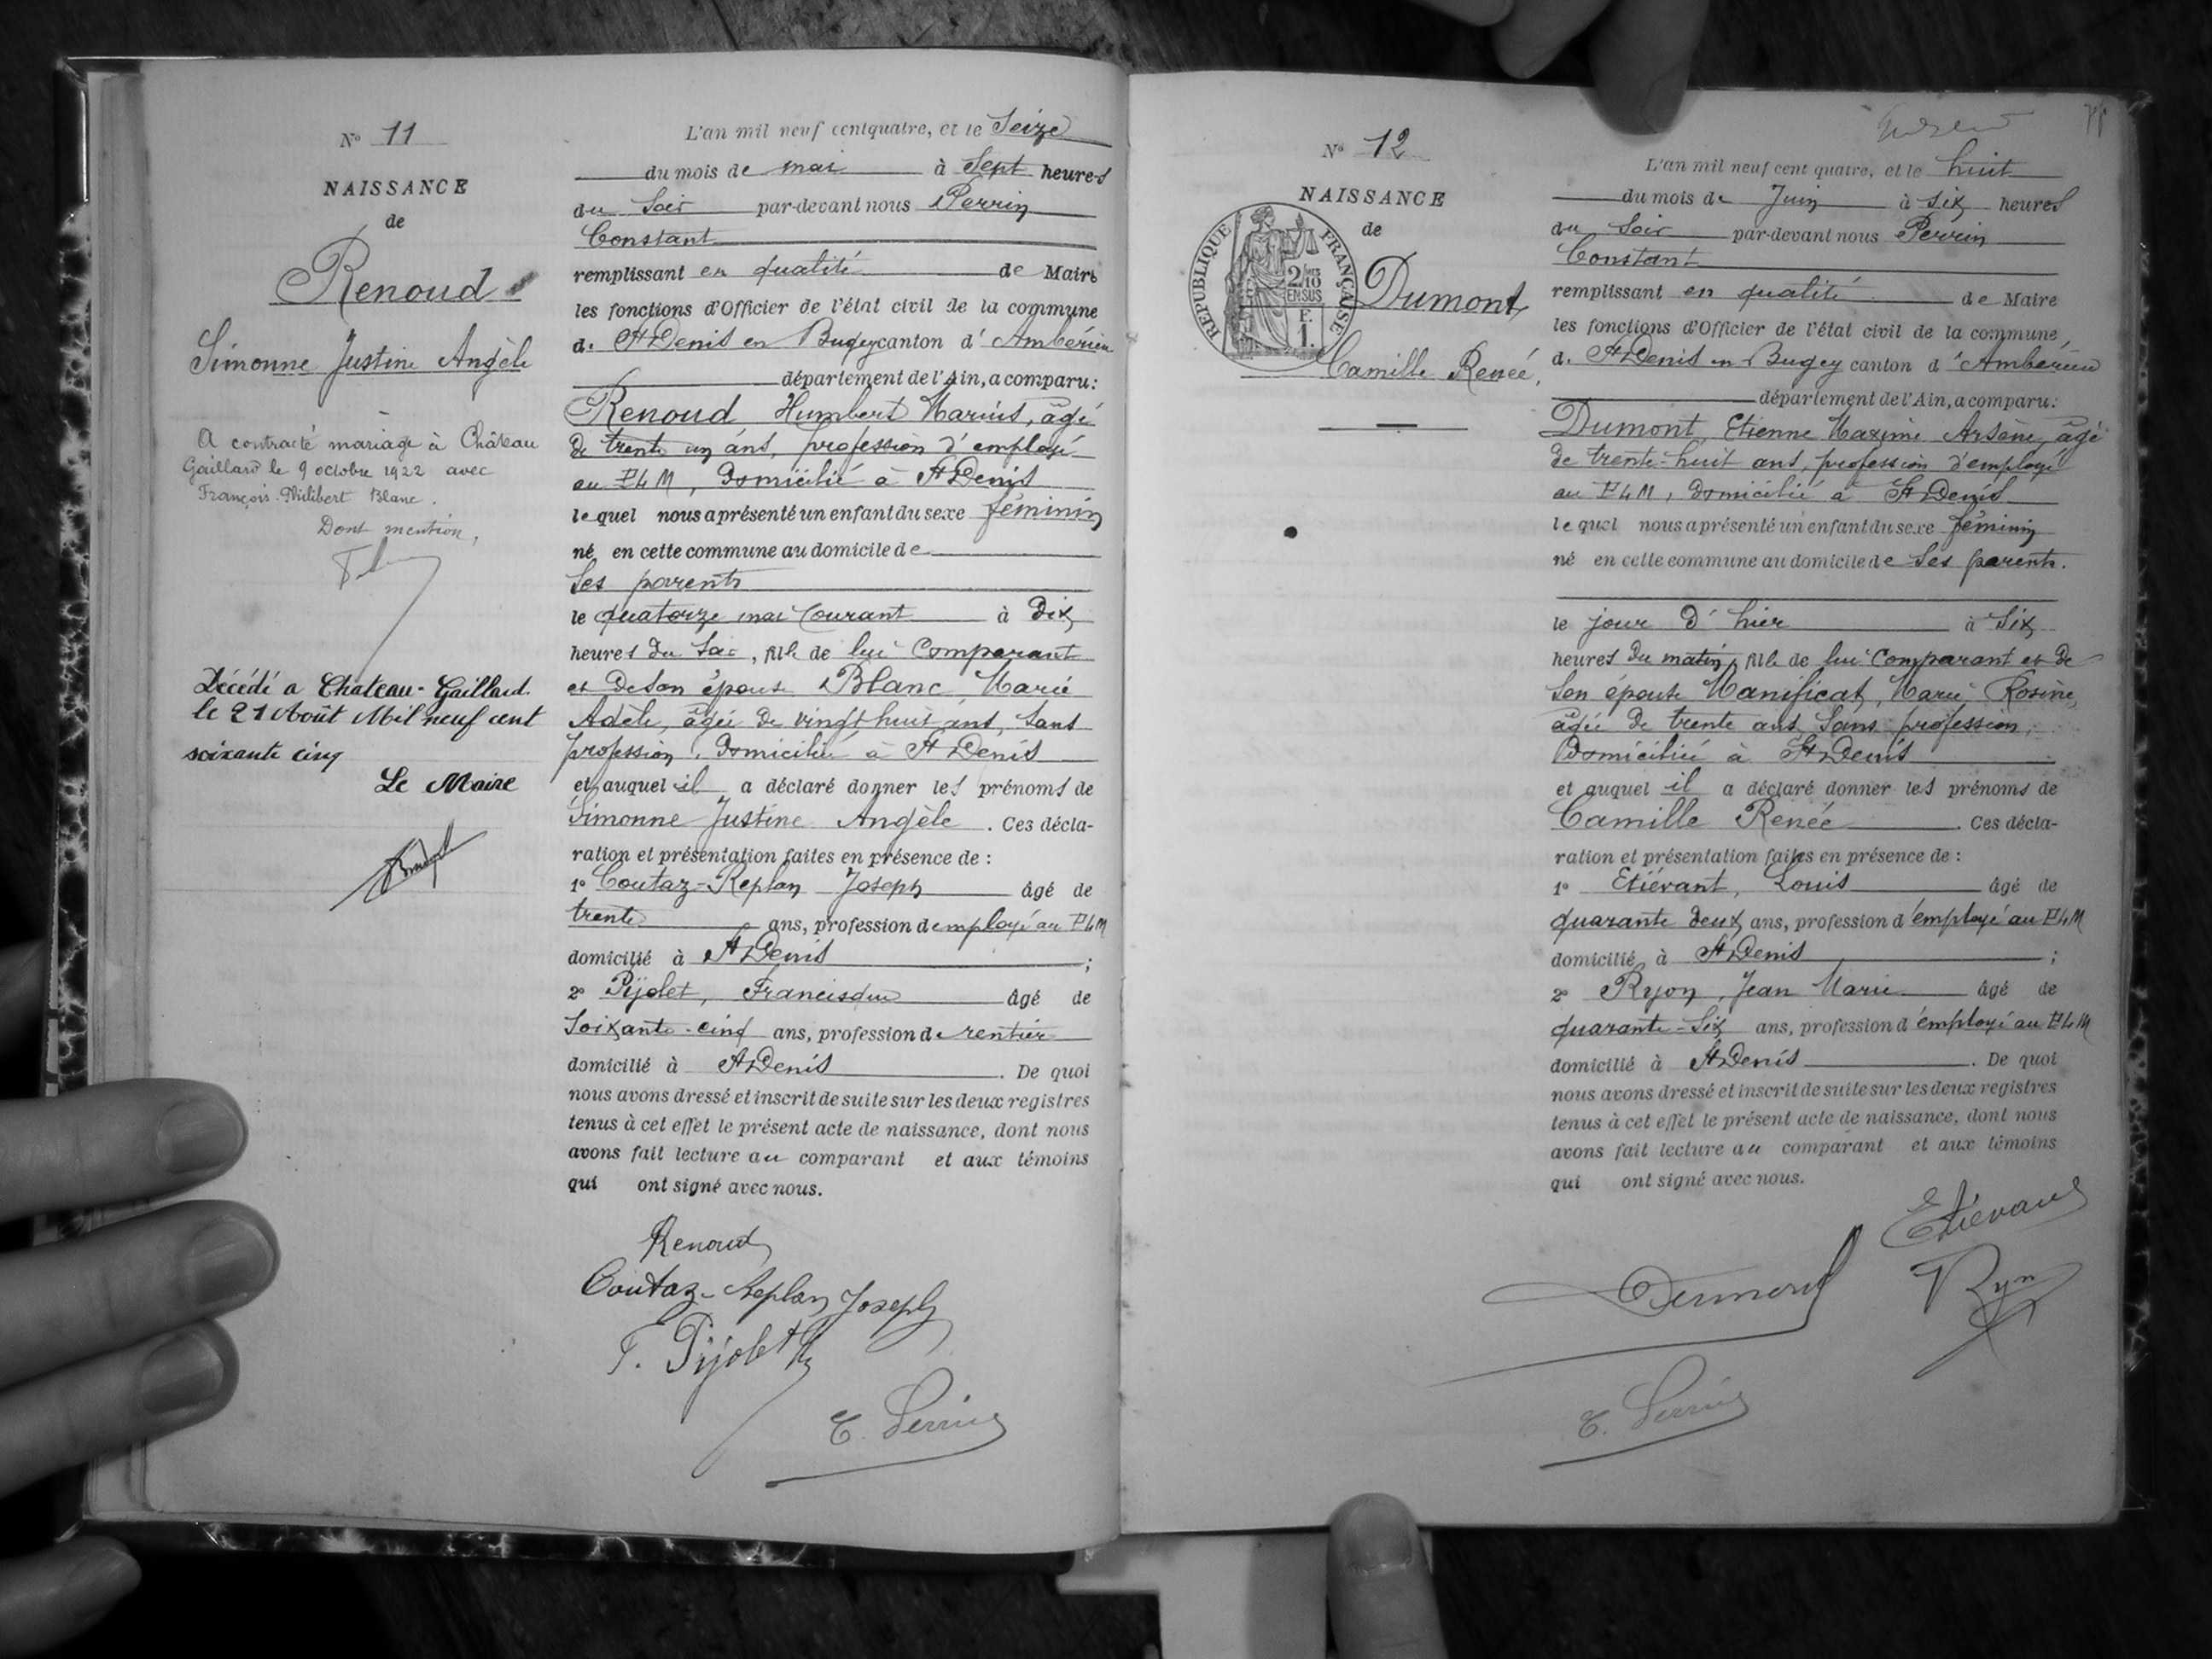 N° 11
NAISSANCE
de
Renoud
Simonne Justine Angèle
A contracté mariage à Château
Gaillard le 9 octobre 1922 avec
François-Philibert Blanc.
Dont mention,
Décédé a Chateau-Gaillard
le 21 Août Mil neuf cent
soixante cinq
Le Maire
L'an mil neuf cent quatre, et le Seize
du mois de mai à Sept heures
du Soir par-devant nous Perrin
Constant
remplissant en qualité de Maire
les fonctions d'Officier de l'état civil de la commune
de St Denis en Bugey canton d'Ambérieu
département de l'Ain, a comparu:
Renoud Humbert Marius, âgé
de trente un ans, profession d'employé
au PLM, domicilié à St Denis
lequel nous a présenté un enfant du sexe féminin
né en cette commune au domicile de
Ses parents
le quatorze mai Courant à Dix
heures du Soir, fille de lui Comparant
et de Son épouse Blanc Marie
Adèle, âgée de vingt huit ans, Sans
profession, domiciliée à St Denis
et auquel il a déclaré donner les prénoms de
Simonne Justine Angèle. Ces décla-
ration et présentation faites en présence de :
1° Coutaz-Replan Joseph âgé de
trente ans, profession d employé au PLM
domicilié à St Denis ;
2° Pijolet, Francisque âgé de
Soixante-cinq ans, profession de rentier
domicilié à St Denis. De quoi
nous avons dressé et inscrit de suite sur les deux registres
tenus à cet effet le présent acte de naissance, dont nous
avons fait lecture au comparant et aux témoins
qui ont signé avec nous.
Renoud
Coutaz-Replan Joseph
F. Pijolet
C. Perrin
N° 12
NAISSANCE
de
RÉPUBLIQUE FRANÇAISE
2/10
EN SUS
F.
1.
Dumont
Camille Renée,
L'an mil neuf cent quatre, et le huit
du mois de Juin à Six heures
du Soir par-devant nous Perrin
Constant
remplissant en qualité de Maire
les fonctions d'Officier de l'état civil de la commune,
de St Denis en Bugey canton d'Ambérieu
département de l'Ain, a comparu:
Dumont Etienne Maxime Arsène, âgé
de trente-huit ans, profession d'employé
au PLM, domicilié à St Denis
lequel nous a présenté un enfant du sexe féminin
né en cette commune au domicile de Ses parents.
le jour d'hier à Six
heures du matin, fille de lui Comparant et de
Son épouse Manificat, Marie Rosine,
âgée de trente ans, Sans profession,
domiciliée à St Denis
et auquel il a déclaré donner les prénoms de
Camille Renée. Ces décla-
ration et présentation faites en présence de :
1° Etiévant, Louis âgé de
quarante deux ans, profession d'employé au PLM
domicilié à St Denis ;
2° Ryon, Jean Marie âgé de
quarante-Six ans, profession d'employé au PLM
domicilié à St Denis. De quoi
nous avons dressé et inscrit de suite sur les deux registres
tenus à cet effet le présent acte de naissance, dont nous
avons fait lecture au comparant et aux témoins
qui ont signé avec nous.
Etiévant
Dumont
Ryon
C. Perrin